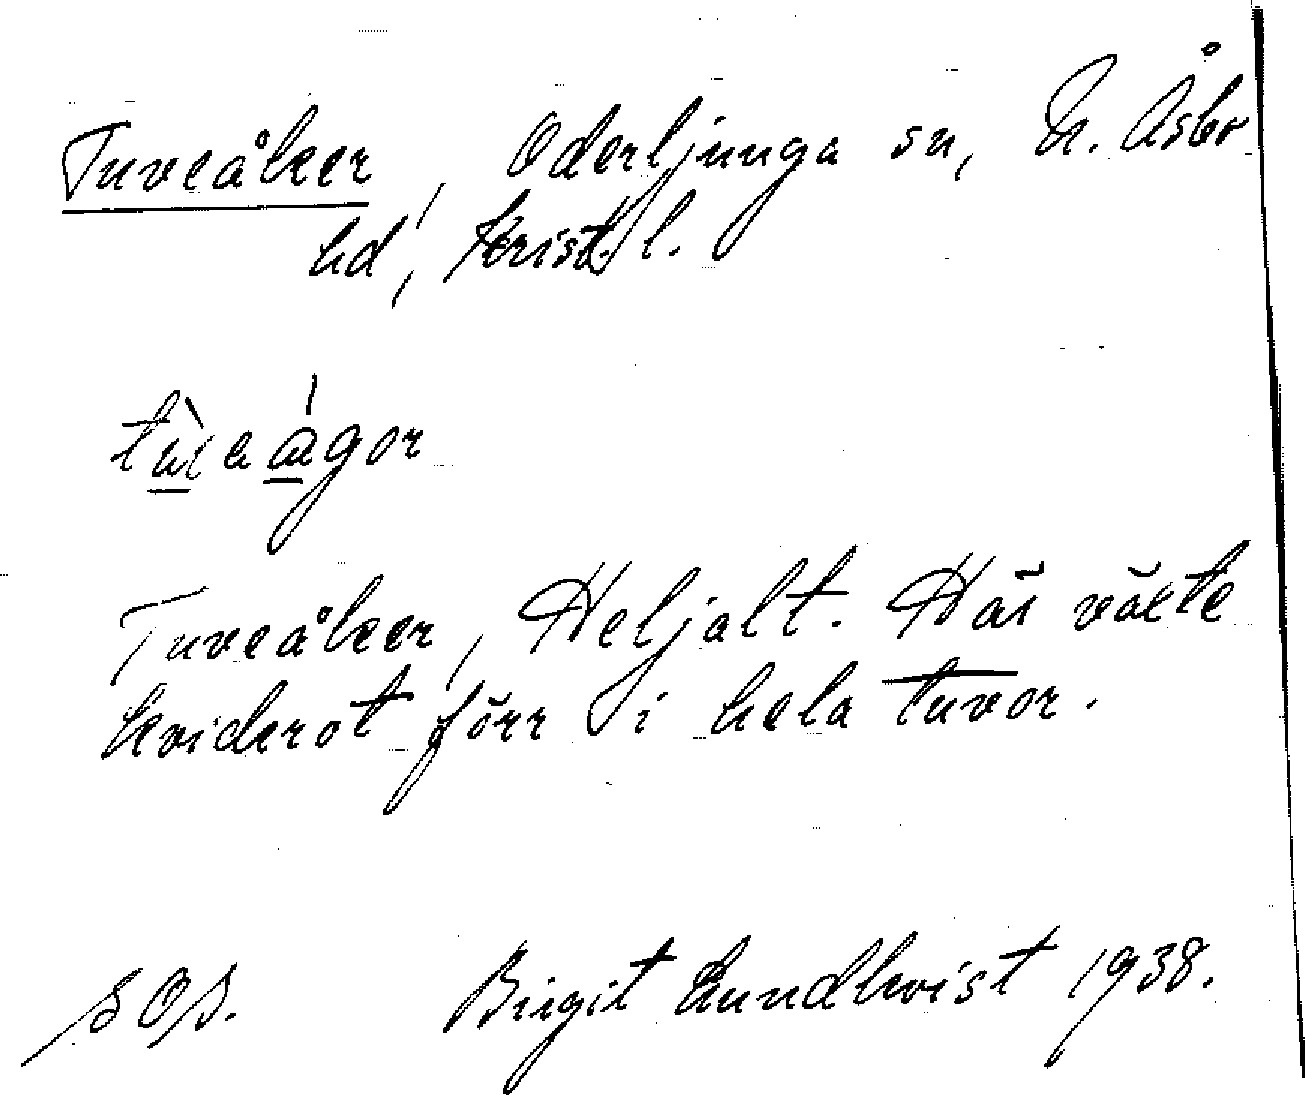 Tuveåker, Oderljunga sn, N. Åsbo
hd, Krist. l.
Tuveåker, Heljalt. Här växte
kviderot förr i hela tuvor.
SOS. Birgit Lundkvist 1938.